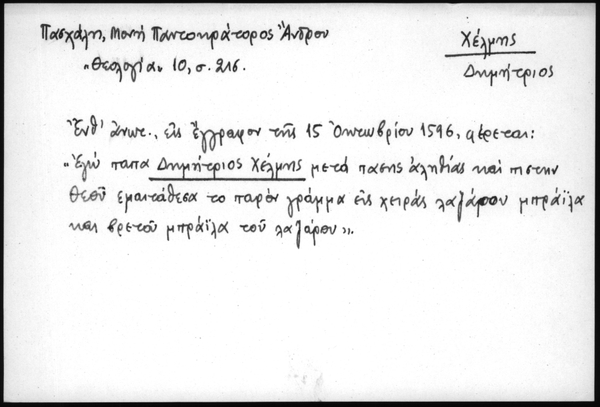 Πασχάλη, Μονή Παντοκράτορος Ἄνδρου
"Θεολογία" 10, σ. 216.
Χέλμης
Δημήτριος
Ἔνθ' ἄνωτ., εἰς ἔγγραφον τῆς 15 Ὀκτωβρίου 1596, φέρεται:
"Ἐγώ παπα Δημήτριος Χέλμης μετά πασης ἀληθίας καί πιστην
θεοῦ εμαιτάθεσα το παρόν γράμμα εἰς χειράς λαζάρου μπράϊλα
και βρετοῦ μπράϊλα τοῦ λαζάρου".